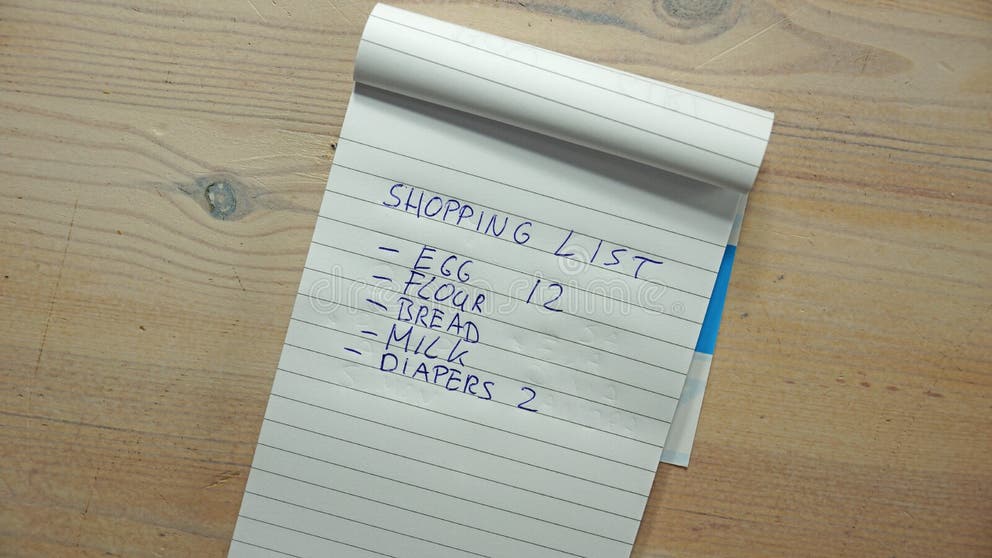 SHOPPING LIST
- EGG 12
- FLOUR
- BREAD
- MILK
- DIAPERS 2
dreamstime.com